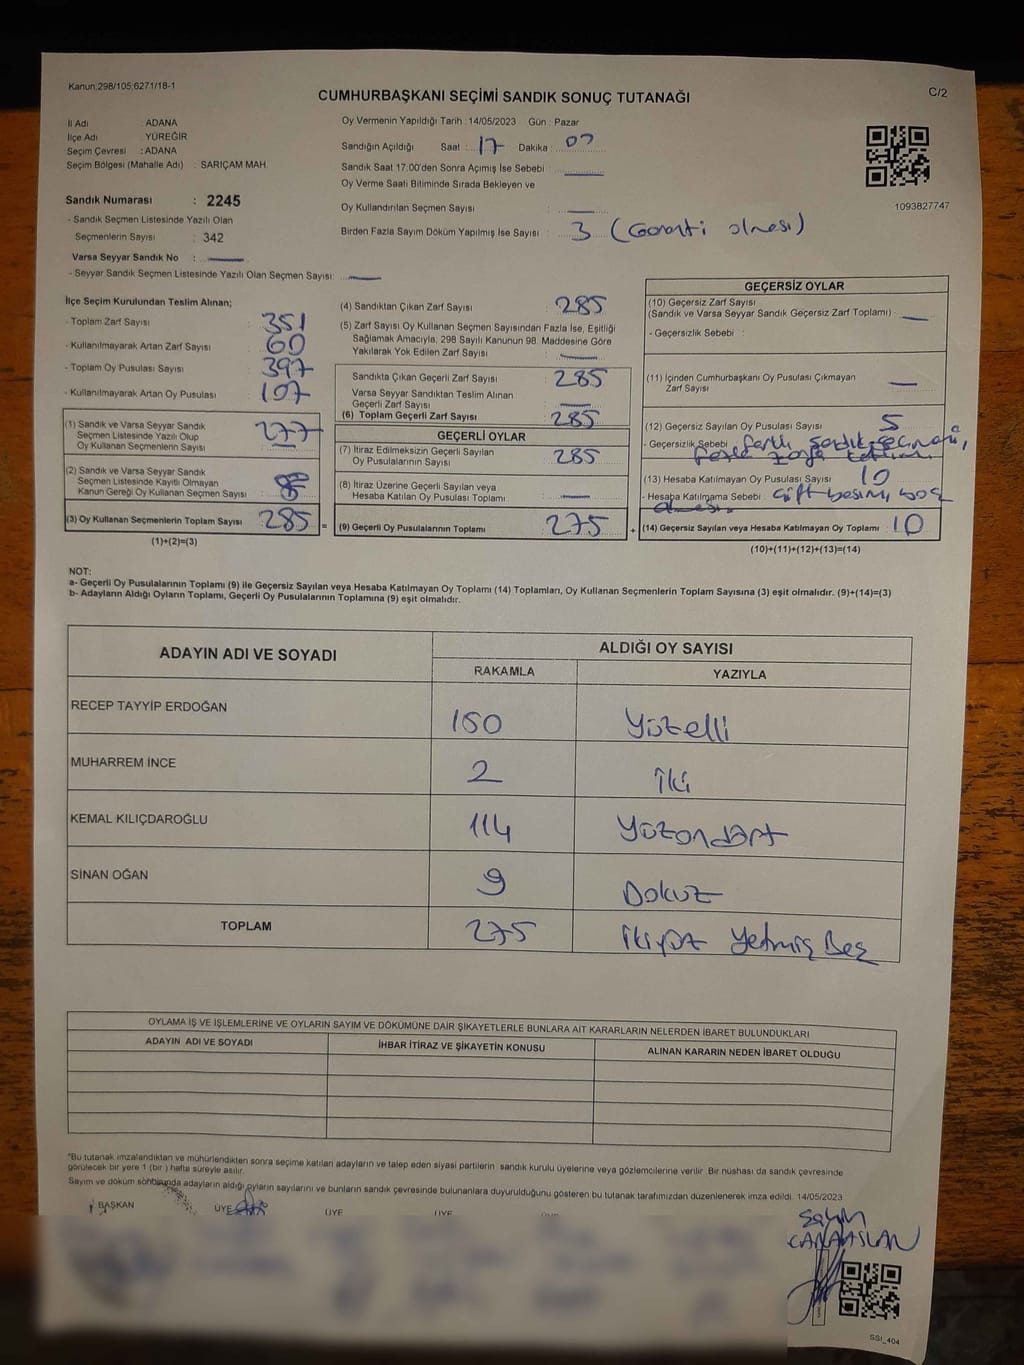 Kanun:298/105;6271/18-1
C/2
CUMHURBAŞKANI SEÇİMİ SANDIK SONUÇ TUTANAĞI
İl Adı ADANA
İlçe Adı YÜREĞİR
Seçim Çevresi : ADANA
Seçim Bölgesi (Mahalle Adı) : SARIÇAM MAH.
Oy Vermenin Yapıldığı Tarih : 14/05/2023 Gün : Pazar
Sandığın Açıldığı Saat : 17 Dakika :
Sandık Saat 17:00'den Sonra Açımış İse Sebebi :
Oy Verme Saati Bitiminde Sırada Bekleyen ve
Oy Kullandırılan Seçmen Sayısı :
Birden Fazla Sayım Döküm Yapılmış İse Sayısı : 3 (Garanti olması)
1093827747
Sandık Numarası : 2245
- Sandık Seçmen Listesinde Yazılı Olan
Seçmenlerin Sayısı : 342
Varsa Seyyar Sandık No :
- Seyyar Sandık Seçmen Listesinde Yazılı Olan Seçmen Sayısı:
İlçe Seçim Kurulundan Teslim Alınan;
- Toplam Zarf Sayısı : 351
- Kullanılmayarak Artan Zarf Sayısı : 60
- Toplam Oy Pusulası Sayısı : 397
- Kullanılmayarak Artan Oy Pusulası : 107
(1) Sandık ve Varsa Seyyar Sandık
Seçmen Listesinde Yazılı Olup
Oy Kullanan Seçmenlerin Sayısı : 277
(2) Sandık ve Varsa Seyyar Sandık
Seçmen Listesinde Kayıtlı Olmayan
Kanun Gereği Oy Kullanan Seçmen Sayısı : 8
(3) Oy Kullanan Seçmenlerin Toplam Sayısı : 285 =
(1)+(2)=(3)
(4) Sandıktan Çıkan Zarf Sayısı : 285
(5) Zarf Sayısı Oy Kullanan Seçmen Sayısından Fazla İse, Eşitliği
Sağlamak Amacıyla, 298 Sayılı Kanunun 98. Maddesine Göre
Yakılarak Yok Edilen Zarf Sayısı :
Sandıkta Çıkan Geçerli Zarf Sayısı : 285
Varsa Seyyar Sandıktan Teslim Alınan
Geçerli Zarf Sayısı :
(6) Toplam Geçerli Zarf Sayısı : 285
GEÇERLİ OYLAR
(7) İtiraz Edilmeksizin Geçerli Sayılan
Oy Pusulalarının Sayısı : 285
(8) İtiraz Üzerine Geçerli Sayılan veya
Hesaba Katılan Oy Pusulası Toplamı :
(9) Geçerli Oy Pusulalarının Toplamı : 275 +
GEÇERSİZ OYLAR
(10) Geçersiz Zarf Sayısı
(Sandık ve Varsa Seyyar Sandık Geçersiz Zarf Toplamı) :
- Geçersizlik Sebebi :
(11) İçinden Cumhurbaşkanı Oy Pusulası Çıkmayan
Zarf Sayısı :
(12) Geçersiz Sayılan Oy Pusulası Sayısı : 5
- Geçersizlik Sebebi : farklı
(13) Hesaba Katılmayan Oy Pusulası Sayısı : 10
- Hesaba Katılmama Sebebi : Çift basımı, boş
olması.
(14) Geçersiz Sayılan veya Hesaba Katılmayan Oy Toplamı : 10
(10)+(11)+(12)+(13)=(14)
NOT:
a- Geçerli Oy Pusulalarının Toplamı (9) ile Geçersiz Sayılan veya Hesaba Katılmayan Oy Toplamı (14) Toplamları, Oy Kullanan Seçmenlerin Toplam Sayısına (3) eşit olmalıdır. (9)+(14)=(3)
b- Adayların Aldığı Oyların Toplamı, Geçerli Oy Pusulalarının Toplamına (9) eşit olmalıdır.
ADAYIN ADI VE SOYADI
ALDIĞI OY SAYISI
RAKAMLA YAZIYLA
RECEP TAYYİP ERDOĞAN 150 Yüzelli
MUHARREM İNCE 2 İki
KEMAL KILIÇDAROĞLU 114 Yüzondört
SİNAN OĞAN 9 Dokuz
TOPLAM 275 İkiyüz Yetmiş Beş
OYLAMA İŞ VE İŞLEMLERİNE VE OYLARIN SAYIM VE DÖKÜMÜNE DAİR ŞİKAYETLERLE BUNLARA AİT KARARLARIN NELERDEN İBARET BULUNDUKLARI
ADAYIN ADI VE SOYADI İHBAR İTİRAZ VE ŞİKAYETİN KONUSU ALINAN KARARIN NEDEN İBARET OLDUĞU
*Bu tutanak imzalandıktan ve mühürlendikten sonra seçime katılan adayların ve talep eden siyasi partilerin sandık kurulu üyelerine veya gözlemcilerine verilir. Bir nüshası da sandık çevresinde
görülecek bir yere 1 (bir ) hafta süreyle asılır.
Sayım ve döküm sonucunda adayların aldığı oyların sayılarını ve bunların sandık çevresinde bulunanlara duyurulduğunu gösteren bu tutanak tarafımızdan düzenlenerek imza edildi. 14/05/2023
BAŞKAN ÜYE ÜYE ÜYE
SSI_404